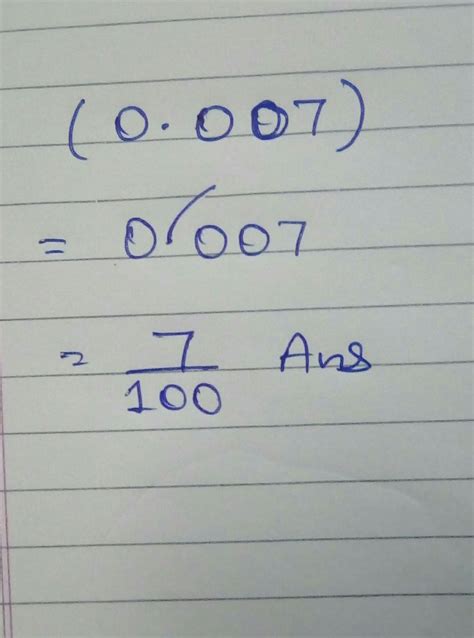 (0.007)
= 0.007
= 7/100 Ans